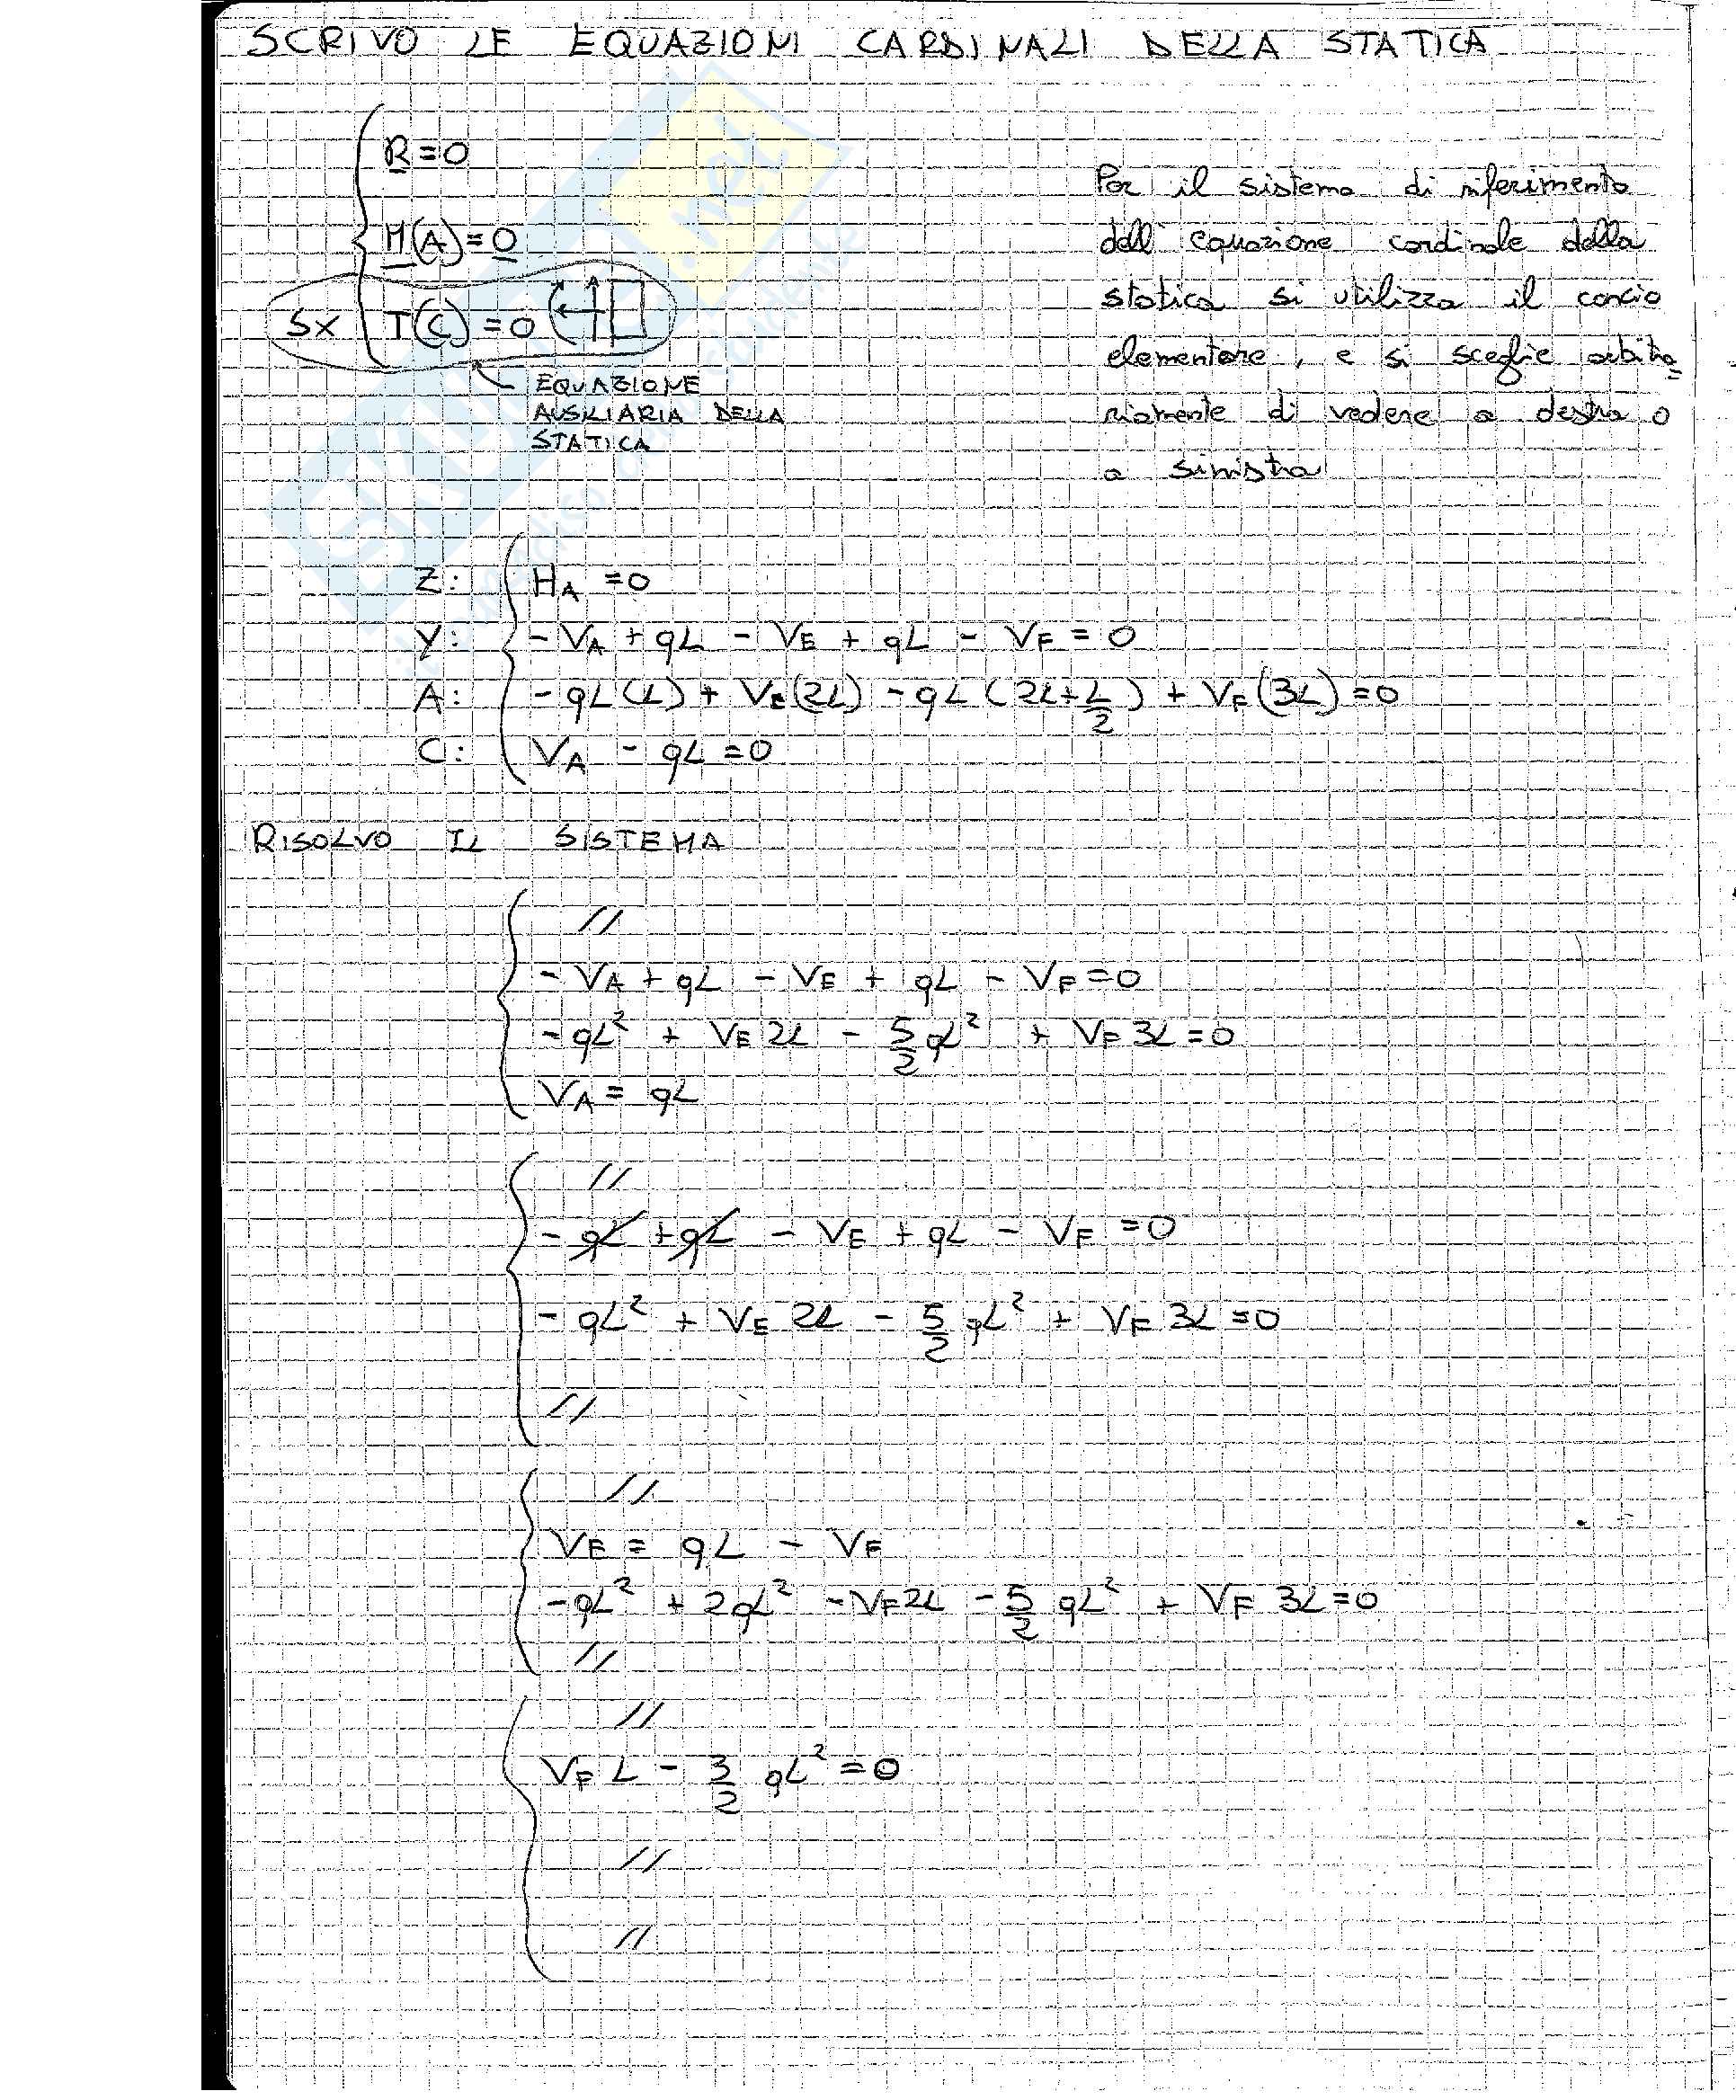 SCRIVO LE EQUAZIONI CARDINALI DELLA STATICA
R = 0
M(A) = 0
Sx T(C) = 0
EQUAZIONE
AUSILIARIA DELLA
STATICA
Per il sistema di riferimento
dell'equazione cardinale della
statica si utilizza il concio
elementare, e si sceglie arbitra=
riamente di vedere a destra o
a sinistra
Z: HA = 0
Y: - VA + qL - VE + qL - VF = 0
A: - qL(L) + VE(2L) - qL(2L+L/2) + VF(3L) = 0
C: VA - qL = 0
RISOLVO IL SISTEMA
//
- VA + qL - VE + qL - VF = 0
- qL² + VE 2L - 5/2 qL² + VF 3L = 0
VA = qL
//
- qL + qL - VE + qL - VF = 0
- qL² + VE 2L - 5/2 qL² + VF 3L = 0
//
//
VE = qL - VF
- qL² + 2qL² - VF 2L - 5/2 qL² + VF 3L = 0
//
//
VF L - 3/2 qL² = 0
//
//